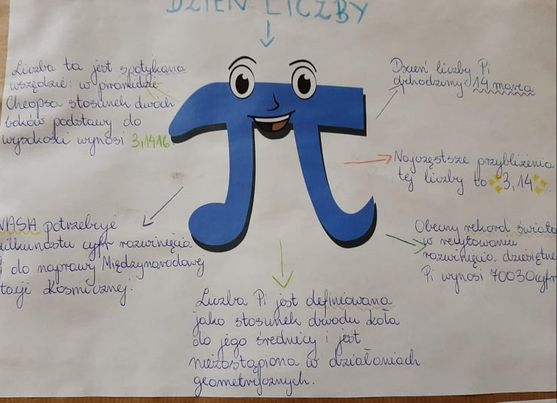 DZIEŃ LICZBY
Liczba ta jest spotykana
wszędzie: w piramidzie
Cheopsa stosunek dwóch
boków podstawy do
wysokości wynosi 3,1416
Dzień liczby Pi
obchodzimy: 14 marca
Najczęstsze przybliżenia
tej liczby to 3,14
NASA potrzebuje
kilkunastu cyfr rozwinięcia
π do naprawy Międzynarodowej
Stacji Kosmicznej.
Obecny rekord świata
w recytowaniu
rozwinięcia dziesiętne
Pi wynosi 70030 cyfr
Liczba Pi jest definiowana
jako stosunek obwodu koła
do jego średnicy i jest
niezastąpiona w działaniach
geometrycznych.